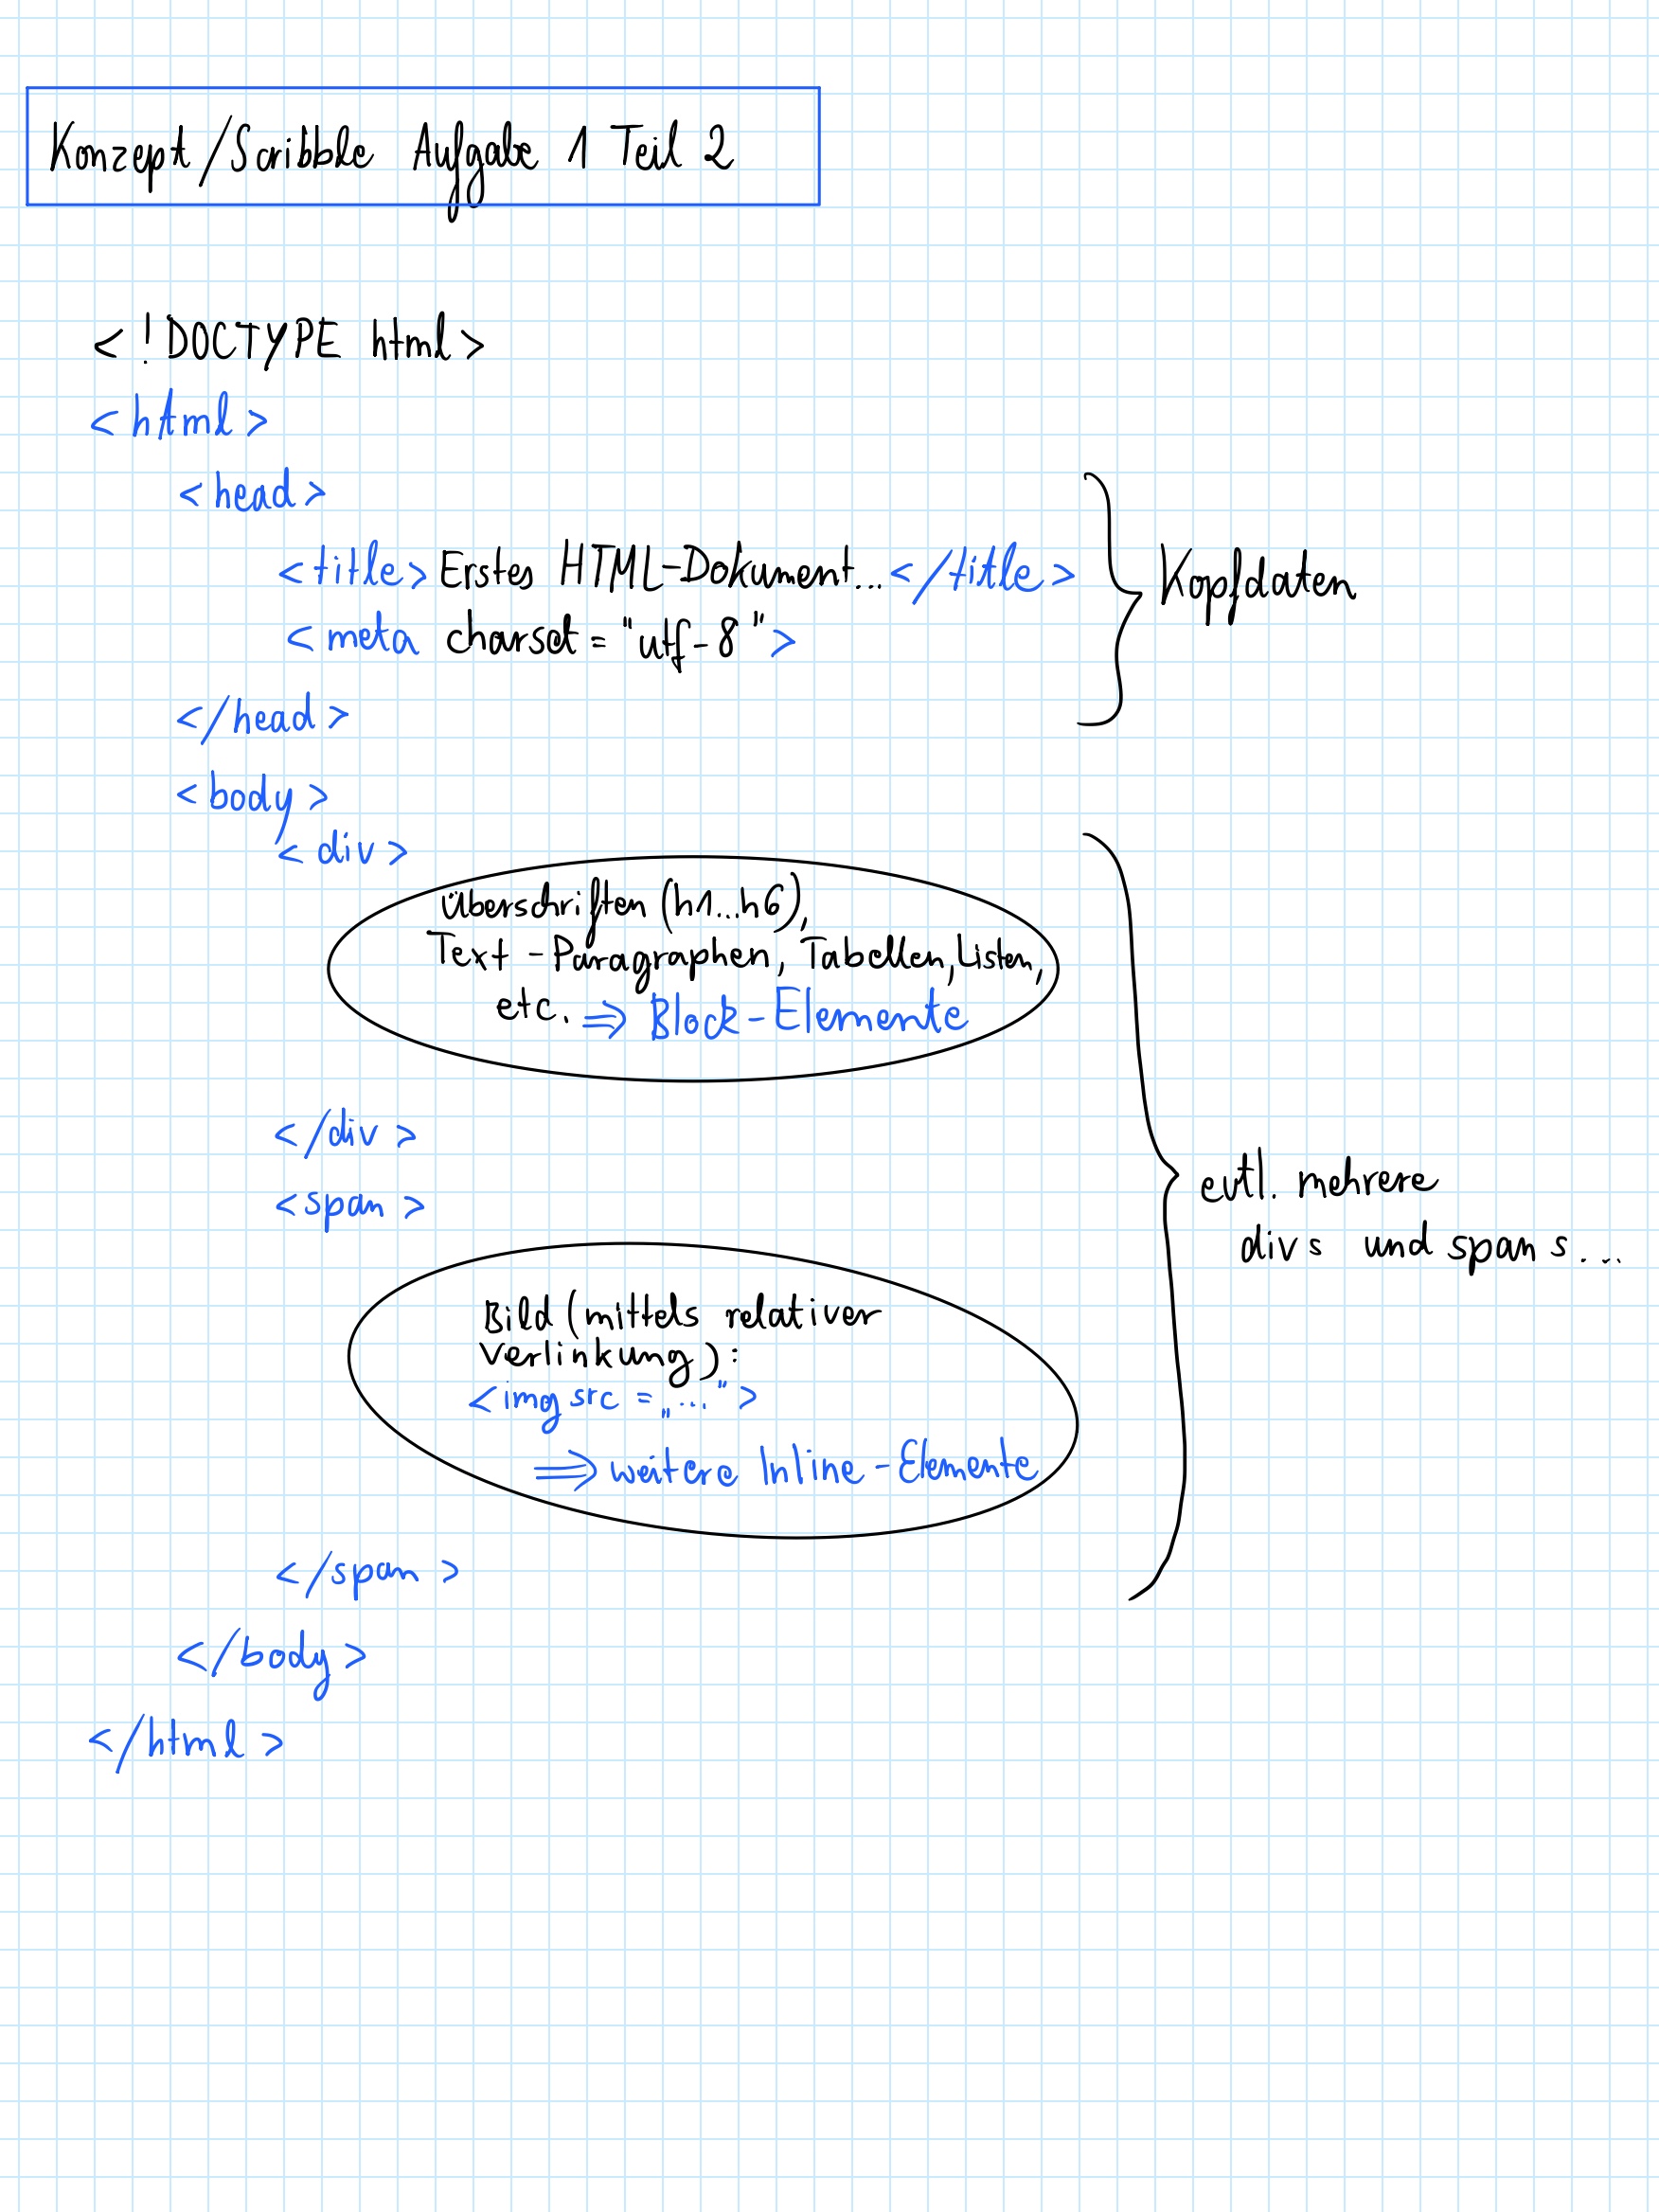 Konzept/Scribble Aufgabe 1 Teil 2
<!DOCTYPE html>
<html>
<head>
<title>Erstes HTML-Dokument...</title>
<meta charset="utf-8">
Kopfdaten
</head>
<body>
<div>
Überschriften (h1...h6),
Text-Paragraphen, Tabellen, Listen,
etc. ⇒ Block-Elemente
</div>
<span>
evtl. mehrere
divs und spans...
Bild (mittels relativer
Verlinkung):
<img src = „...">
⇒ weitere Inline-Elemente
</span>
</body>
</html>